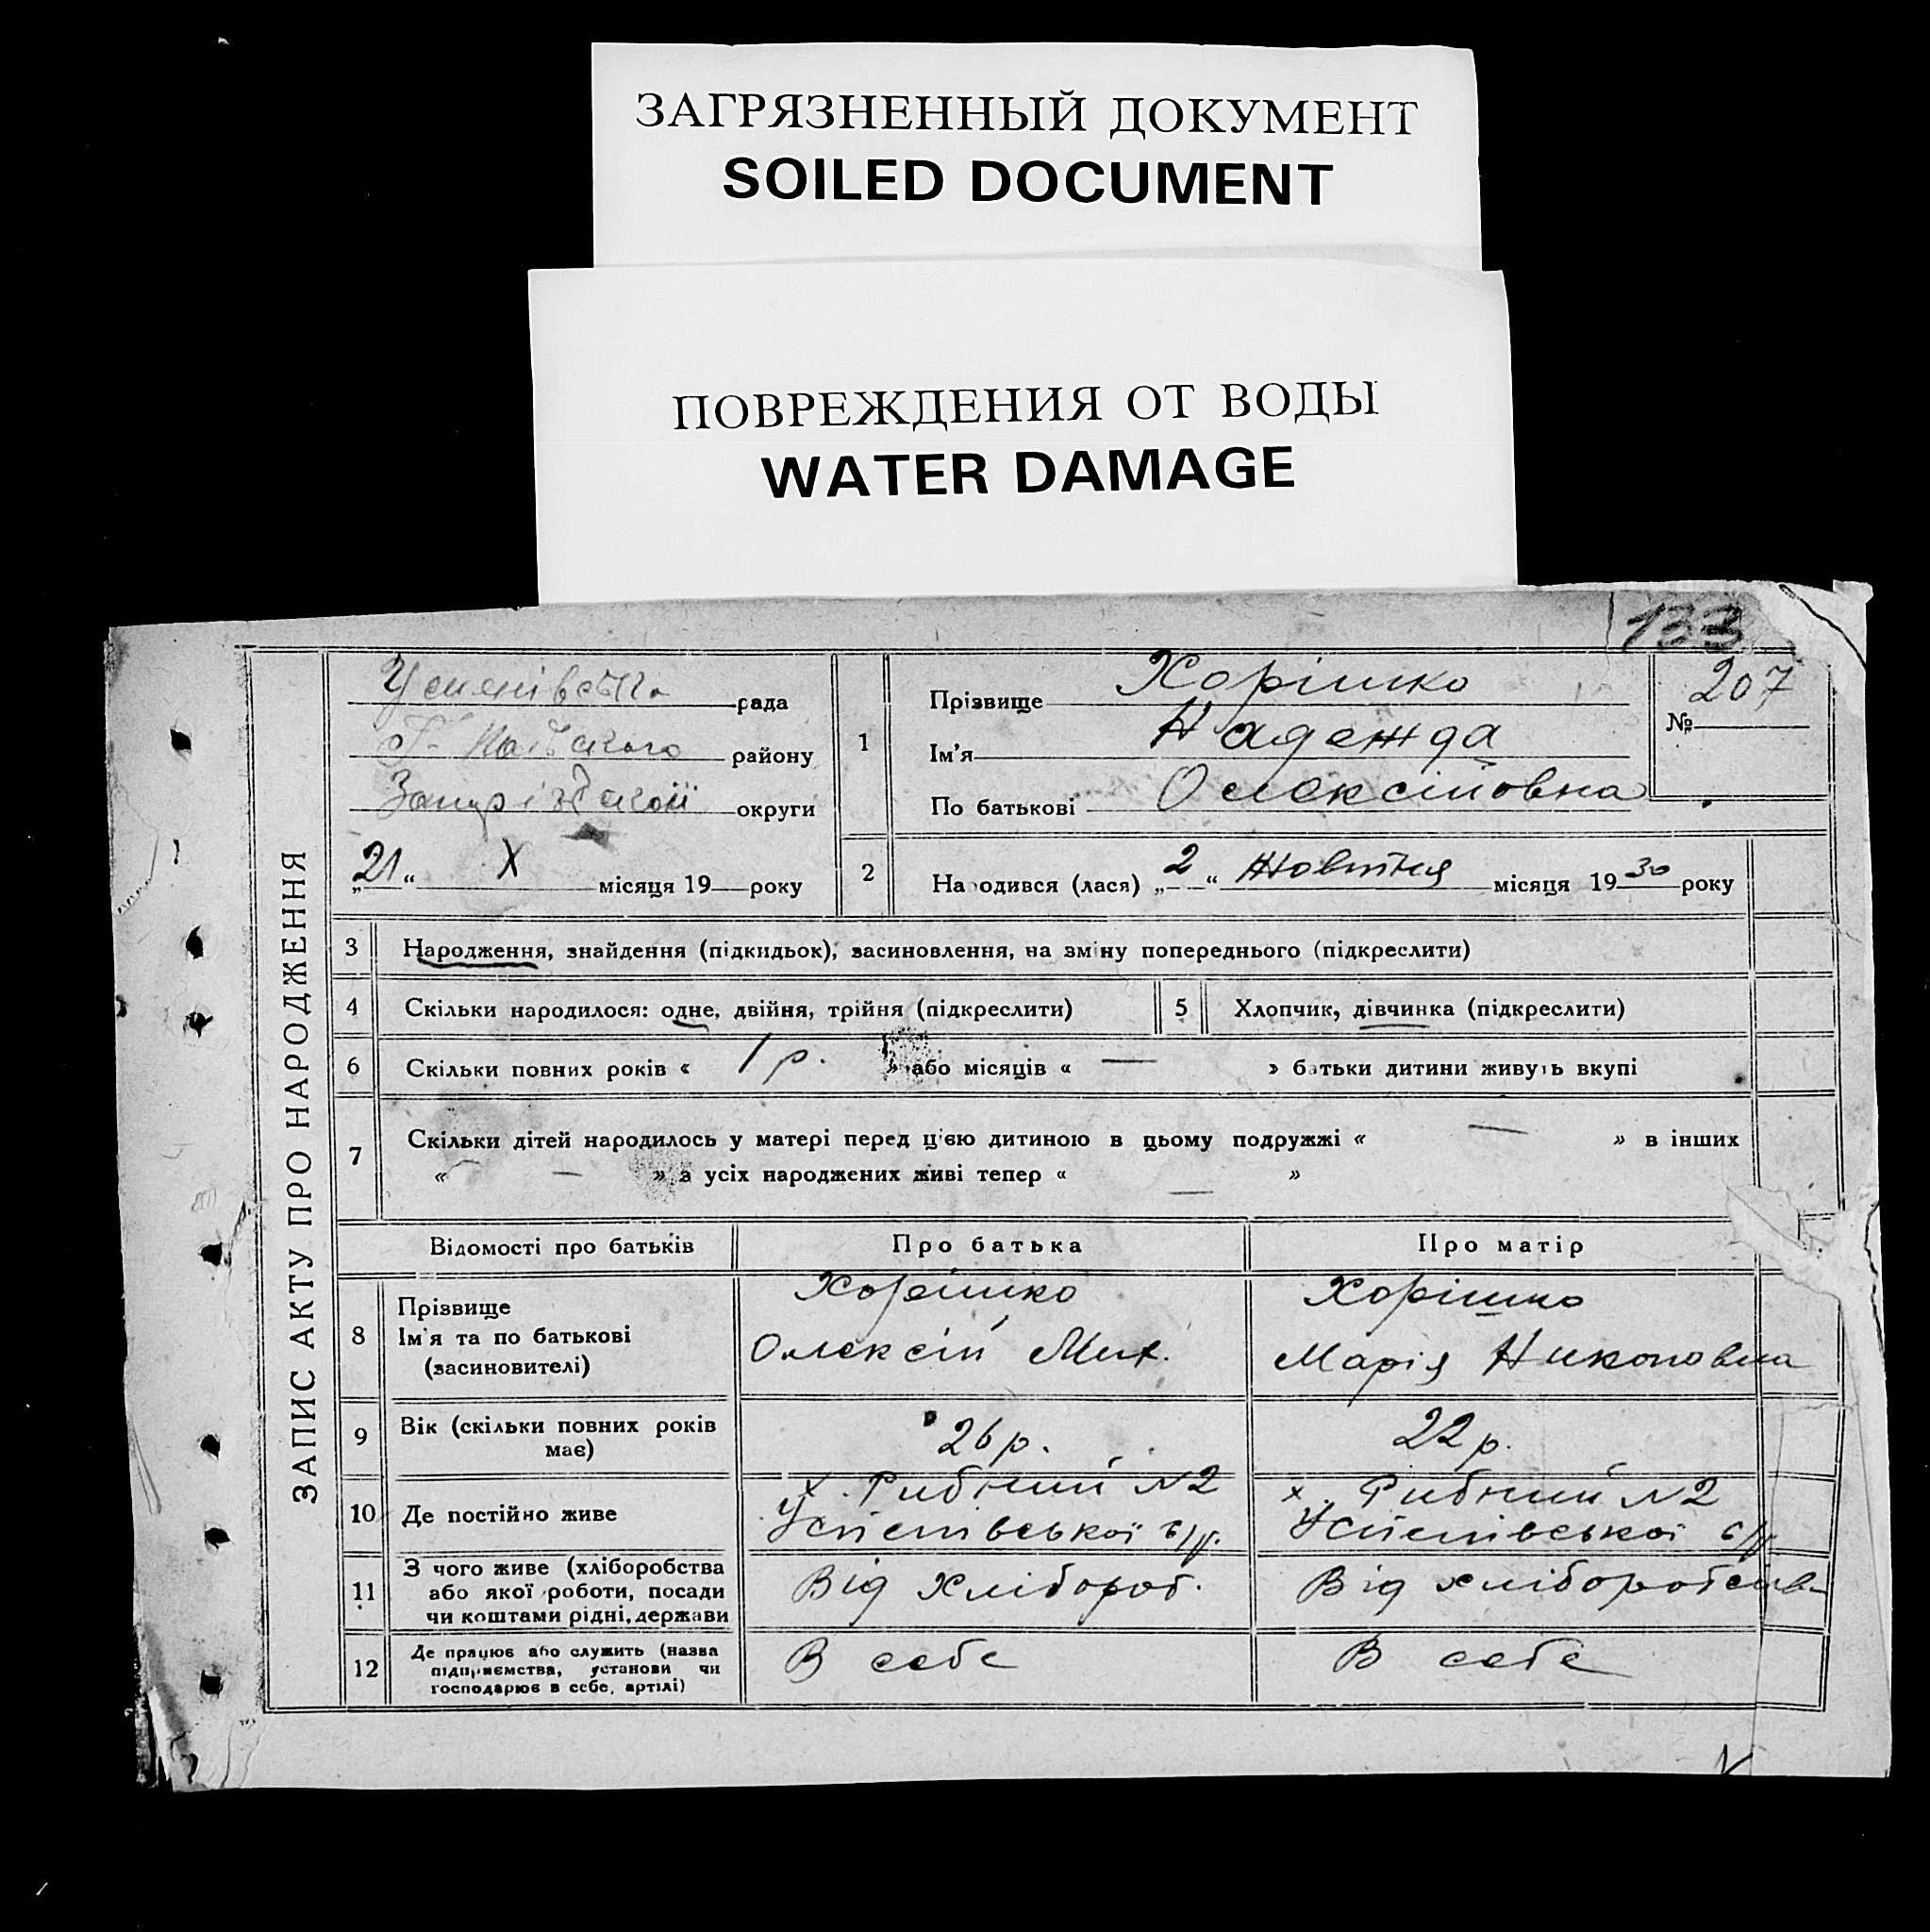 ЗАГРЯЗНЕННЫЙ ДОКУМЕНТ
SOILED DOCUMENT
ПОВРЕЖДЕНИЯ ОТ ВОДЫ
WATER DAMAGE
133
ЗАПИС АКТУ ПРО НАРОДЖЕННЯ
рада
району
округи
„21“ X місяця 19 року
1
Прізвище Хорішко
Ім'я Надежда
По батькові Олексійовна
207
№
2
Народився (лася) „2“ Жовтня місяця 1930 року
3 Народження, знайдення (підкидьок), засиновлення, на зміну попереднього (підкреслити)
4 Скільки народилося: одне, двійня, трійня (підкреслити) 5 Хлопчик, дівчинка (підкреслити)
6 Скільки повних років « 1 р. » або місяців « — » батьки дитини живуть вкупі
7 Скільки дітей народилось у матері перед цією дитиною в цьому подружжі « — » в інших
« — » з усіх народжених живі тепер « — »
Відомості про батьків Про батька Про матір
8 Прізвище
Ім'я та по батькові
(засиновителі)
Хорішко
Олексій Мих.
Хорішко
Марія Никоновна
9 Вік (скільки повних років має) 26 р. 22 р.
10 Де постійно живе
х. Рибний №2
Успенівської с/р.
х. Рибний №2
Успенівської с/р
11 З чого живе (хліборобства
або якої роботи, посади
чи коштами рідні, держави
Від хлібороб.
Від хліборобства
12 Де працює або служить (назва
підприємства, установи чи
господарює в себе, артілі)
В себе
В себе